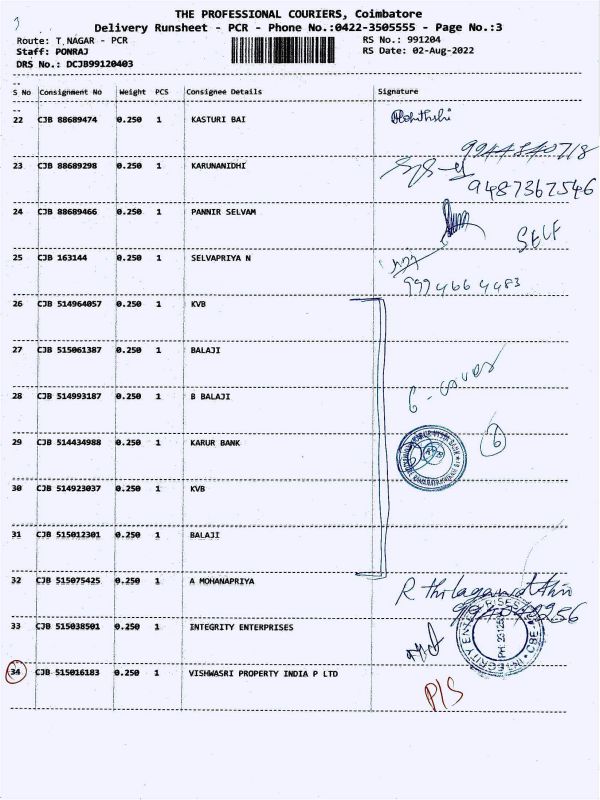 THE PROFESSIONAL COURIERS, Coimbatore
Delivery Runsheet - PCR - Phone No.:0422-3505555 - Page No.:3
Route: T.NAGAR - PCR RS No.: 991204
Staff: PONRAJ RS Date: 02-Aug-2022
DRS No.: DCJB99120403
S No Consignment No Weight PCS Consignee Details Signature
22 CJB 88689474 0.250 1 KASTURI BAI
9944840718
23 CJB 88689298 0.250 1 KARUNANIDHI
9487367546
24 CJB 88689466 0.250 1 PANNIR SELVAM
SELF
25 CJB 163144 0.250 1 SELVAPRIYA N
9994664483
26 CJB 514964057 0.250 1 KVB
27 CJB 515061387 0.250 1 BALAJI
28 CJB 514993187 0.250 1 B BALAJI 6 - cover
29 CJB 514434988 0.250 1 KARUR BANK 6
30 CJB 514923037 0.250 1 KVB
31 CJB 515012301 0.250 1 BALAJI
32 CJB 515075425 0.250 1 A MOHANAPRIYA
33 CJB 515038501 0.250 1 INTEGRITY ENTERPRISES
34 CJB 515016183 0.250 1 VISHWASRI PROPERTY INDIA P LTD
P/S